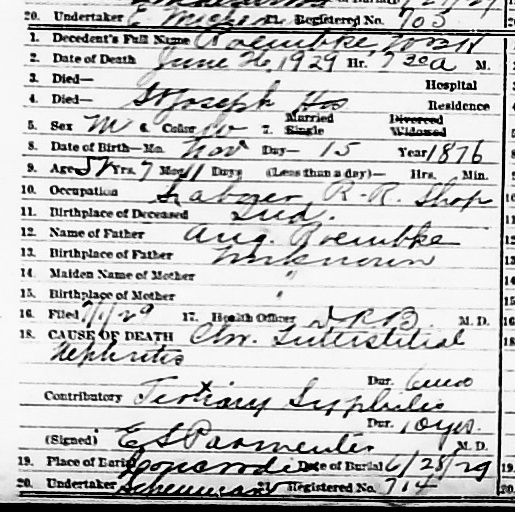 20. Undertaker E 21. Registered No. 703
1. Decedent's Full Name Roembke, Wm H
2. Date of Death June 26, 1929 Hr. 7 30 a M.
3. Died— Hospital
4. Died— St Joseph Hos Residence
5. Sex M 6. Color W 7. Married Single Divorced Widowed
8. Date of Birth—Mo. Nov Day— 15 Year 1876
9. Age 52 Yrs. 7 Mos. 11 Days (Less than a day)— Hrs. Min.
10. Occupation Laborer R. R. Shop
11. Birthplace of Deceased Ind.
12. Name of Father Aug. Roembke
13. Birthplace of Father unknown
14. Maiden Name of Mother "
15. Birthplace of Mother "
16. Filed 7/1/29 17. Health Officer M. D.
18. CAUSE OF DEATH Chr. Interstitial
Nephritis
Dur. 6 mo
Contributory Tertiary Syphilis
Dur. 10 yrs.
(Signed) E S Parmenter M. D.
19. Place of Burial Concordia Date of Burial 6/28/29
20. Undertaker 21. Registered No. 714